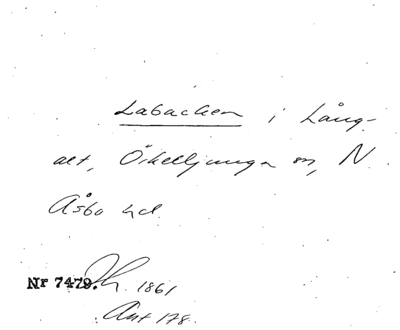 Labacken i Lång-
alt, Örkelljunga sn, N.
Åsbo hd.
Nr 7479. 1861
Ant 178.